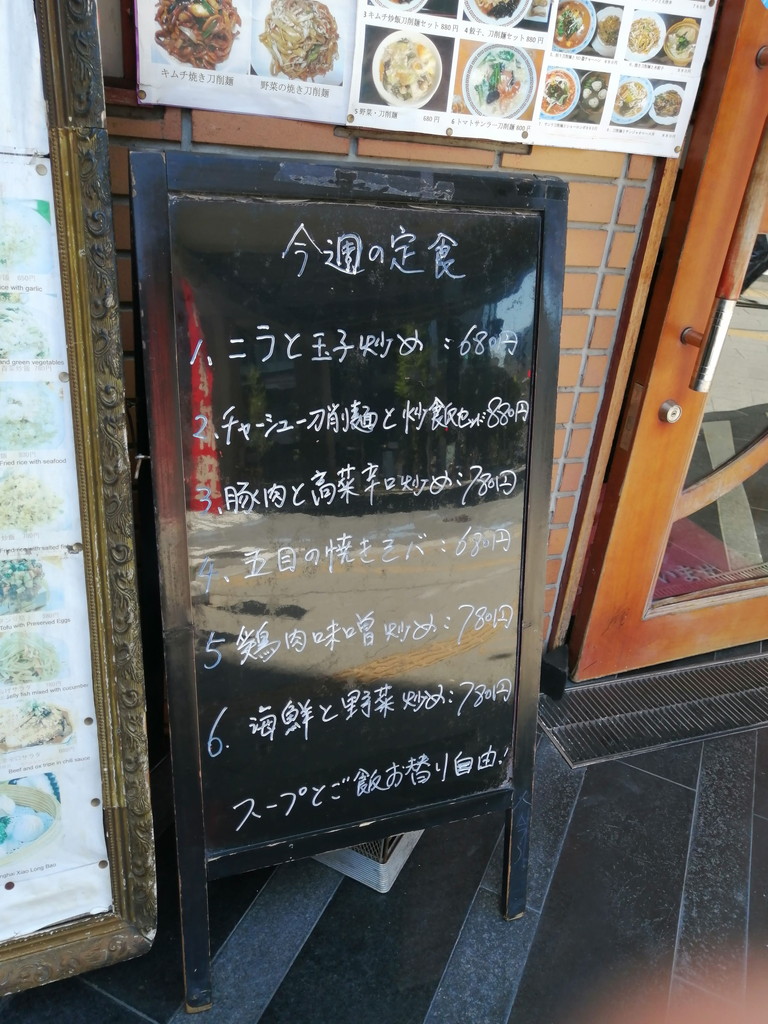 キムチ焼き刀削麺
野菜の焼き刀削麺
3 キムチ炒飯刀削麺セット 880円
5 野菜・刀削麺 680円
6 トマトサンラー刀削麺 800円
今週の定食
1、ニラと玉子炒め:680円
2、チャーシュー刀削麺と炒飯セット880円
3、豚肉と高菜辛口炒め:780円
4、五目の焼きそバ:680円
5 鶏肉味噌炒め:780円
6. 海鮮と野菜炒め:780円
スープとご飯お替り自由!
with garlic
and green vegetables
Fried rice with seafood
Tofu with Preserved Eggs
Jelly fish mixed with cucumber
Beef and ox tripe in chili sauce
Xiao Long Bao